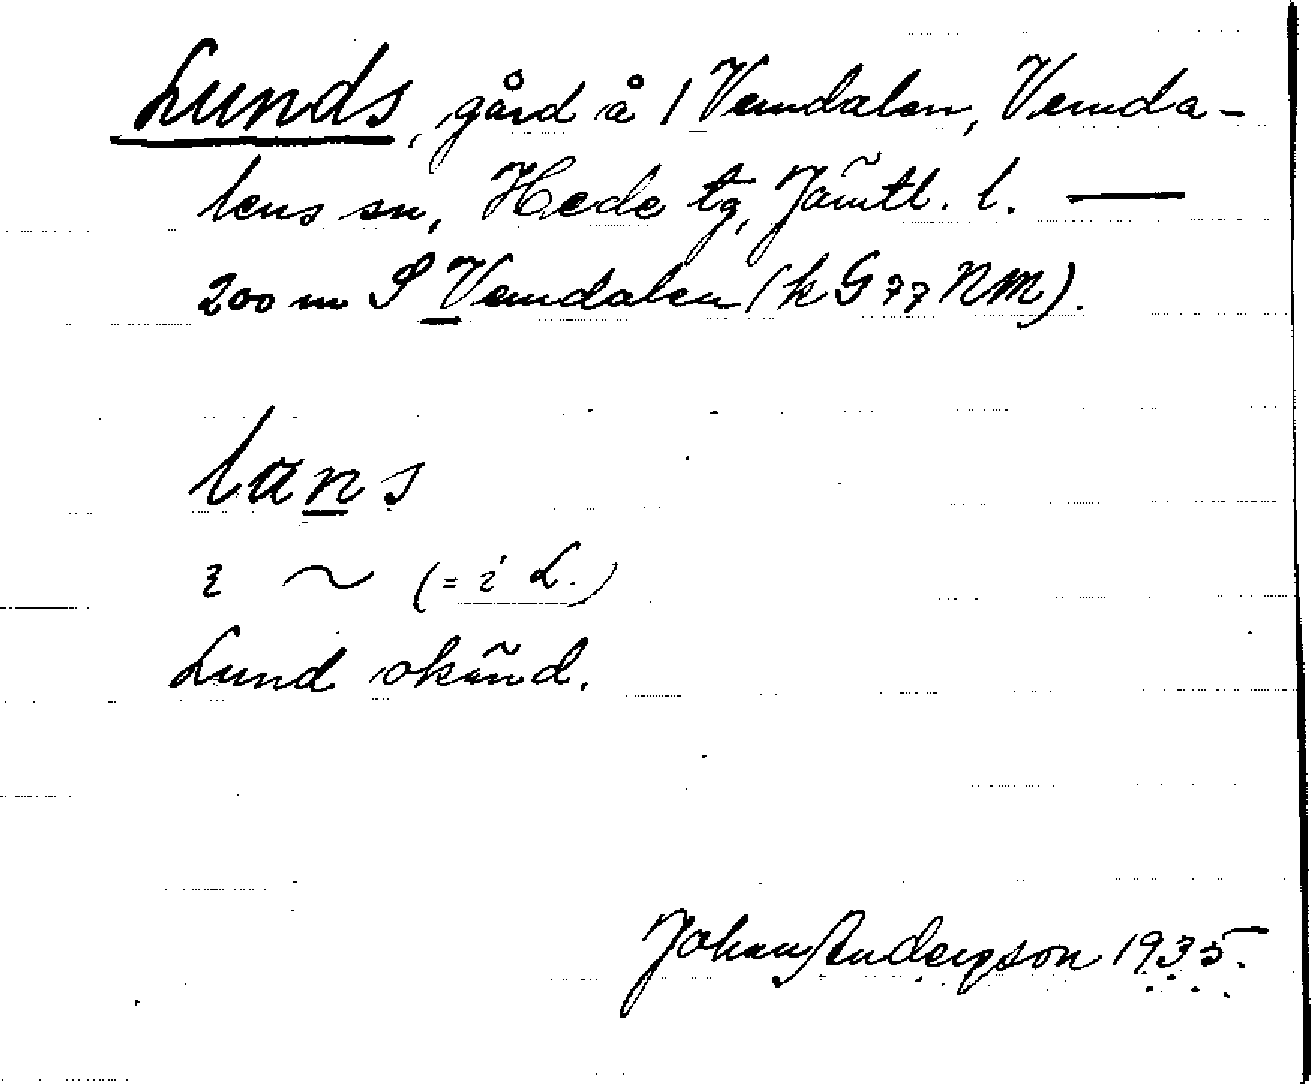 Lunds, gård å 1 Vemdalen, Vemda-
lens sn, Hede tg, Jämtl. l. —
200 m S Vemdalen (k G 77 NM).
lans
i ~ (= i L.)
Lund okänd.
Johan Anderson 1935.